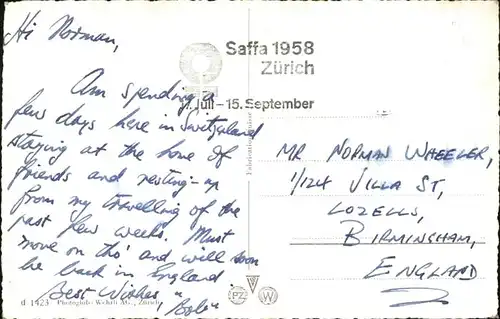 Hi Norman,
Am spending a
few days here in Switzerland
staying at the home of
friends and resting-up
from my travelling of the
past few weeks. Must
move on tho' and will soon
be back in England
Best Wishes, "Bob"
Saffa 1958
Zürich
17. Juli - 15. September
MR NORMAN WHEELER,
1/124 VILLA ST,
LOZELLS,
BIRMINGHAM,
ENGLAND
d 1423 Photoglob-Wehrli AG., Zürich
PZ W